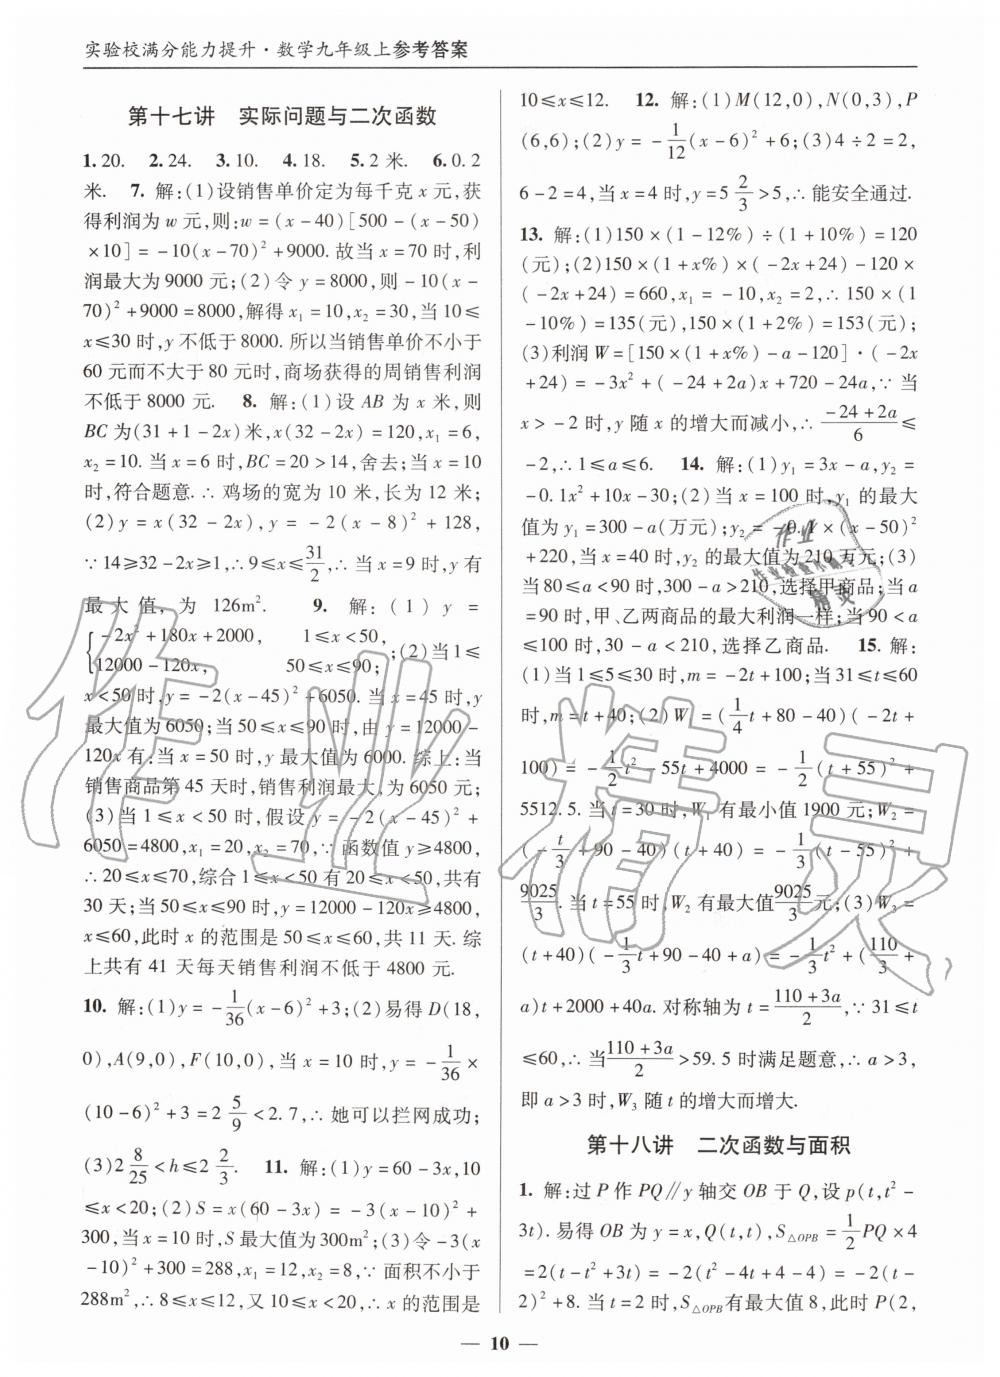 实验校满分能力提升·数学九年级上参考答案
第十七讲 实际问题与二次函数
1. 20. 2. 24. 3. 10. 4. 18. 5. 2 米. 6. 0. 2
米. 7. 解:(1)设销售单价定为每千克 x 元,获
得利润为 w 元,则:w=(x-40)[500-(x-50)
×10]=-10(x-70)²+9000. 故当 x=70 时,利
润最大为 9000 元;(2)令 y=8000,则-10(x-
70)²+9000=8000,解得 x₁=10,x₂=30,当 10≤
x≤30 时,y 不低于 8000. 所以当销售单价不小于
60 元而不大于 80 元时,商场获得的周销售利润
不低于 8000 元. 8. 解:(1)设 AB 为 x 米,则
BC 为(31+1-2x)米,x(32-2x)=120,x₁=6,
x₂=10. 当 x=6 时,BC=20>14,舍去;当 x=10
时,符合题意. ∴ 鸡场的宽为 10 米,长为 12 米;
(2)y=x(32-2x),y=-2(x-8)²+128,
∵14≥32-2x≥1,∴9≤x≤31/2,∴当 x=9 时,y 有
最大值,为 126m². 9. 解:(1) y=
{-2x²+180x+2000, 1≤x<50,
12000-120x, 50≤x≤90; ;(2)当 1≤
x<50 时,y=-2(x-45)²+6050. 当 x=45 时,y
最大值为 6050;当 50≤x≤90 时,由 y=12000-
120x 有:当 x=50 时,y 最大值为 6000. 综上:当
销售商品第 45 天时,销售利润最大,为 6050 元;
(3)当 1≤x<50 时,假设 y=-2(x-45)²+
6050=4800,x₁=20,x₂=70,∵函数值 y≥4800,
∴20≤x≤70,综合 1≤x<50 有 20≤x<50,共有
30 天;当 50≤x≤90 时,y=12000-120x≥4800,
x≤60,此时 x 的范围是 50≤x≤60,共 11 天. 综
上共有 41 天每天销售利润不低于 4800 元.
10. 解:(1)y=-1/36(x-6)²+3;(2)易得 D(18,
0),A(9,0),F(10,0),当 x=10 时,y=-1/36×
(10-6)²+3=2 5/9<2.7,∴她可以拦网成功;
(3)2 8/25<h≤2 2/3. 11. 解:(1)y=60-3x,10
≤x<20;(2)S=x(60-3x)=-3(x-10)²+
300,当 x=10 时,S 最大值为 300m²;(3)令-3(x
-10)²+300=288,x₁=12,x₂=8,∵面积不小于
288m²,∴8≤x≤12,又 10≤x<20,∴x 的范围是
10≤x≤12. 12. 解:(1)M(12,0),N(0,3),P
(6,6);(2)y=-1/12(x-6)²+6;(3)4÷2=2,
6-2=4,当 x=4 时,y=5 2/3>5,∴能安全通过.
13. 解:(1)150×(1-12%)÷(1+10%)=120
(元);(2)150×(1+x%)×(-2x+24)-120×
(-2x+24)=660,x₁=-10,x₂=2,∴150×(1
-10%)=135(元),150×(1+2%)=153(元);
(3)利润 W=[150×(1+x%)-a-120]·(-2x
+24)=-3x²+(-24+2a)x+720-24a,∵当
x>-2 时,y 随 x 的增大而减小,∴(-24+2a)/6≤
-2,∴1≤a≤6. 14. 解:(1)y₁=3x-a,y₂=
-0.1x²+10x-30;(2)当 x=100 时,y₁ 的最大
值为 y₁=300-a(万元);y₂=-0.1×(x-50)²
+220,当 x=40 时,y₂ 的最大值为 210 万元;(3)
当 80≤a<90 时,300-a>210,选择甲商品;当 a
=90 时,甲、乙两商品的最大利润一样;当 90<a
≤100 时,30-a<210,选择乙商品. 15. 解:
(1)当 1≤5≤30 时,m=-2t+100;当 31≤t≤60
时,m=t+40;(2)W₁=(1/4t+80-40)(-2t+
100)=-1/2t²-55t+4000=-1/2(t+55)²+
5512.5. 当 t=30 时,W₁ 有最小值 1900 元;W₂=
(-t/3+90-40)(t+40)=-1/3(t-55)²+
9025/3. 当 t=55 时,W₂ 有最大值 9025/3;(3)W₃=
(t+40)(-1/3t+90-40+a)=-1/3t²+(110/3+
a)t+2000+40a. 对称轴为 t=(110+3a)/2,∵31≤t
≤60,∴当(110+3a)/2>59.5 时满足题意,∴a>3,
即 a>3 时,W₃ 随 t 的增大而增大.
第十八讲 二次函数与面积
1. 解:过 P 作 PQ∥y 轴交 OB 于 Q,设 p(t,t²-
3t). 易得 OB 为 y=x,Q(t,t),S△OPB=1/2PQ×4
=2(t-t²+3t)=-2(t²-4t+4-4)=-2(t-
2)²+8. 当 t=2 时,S△OPB 有最大值 8,此时 P(2,
— 10 —
作业精灵